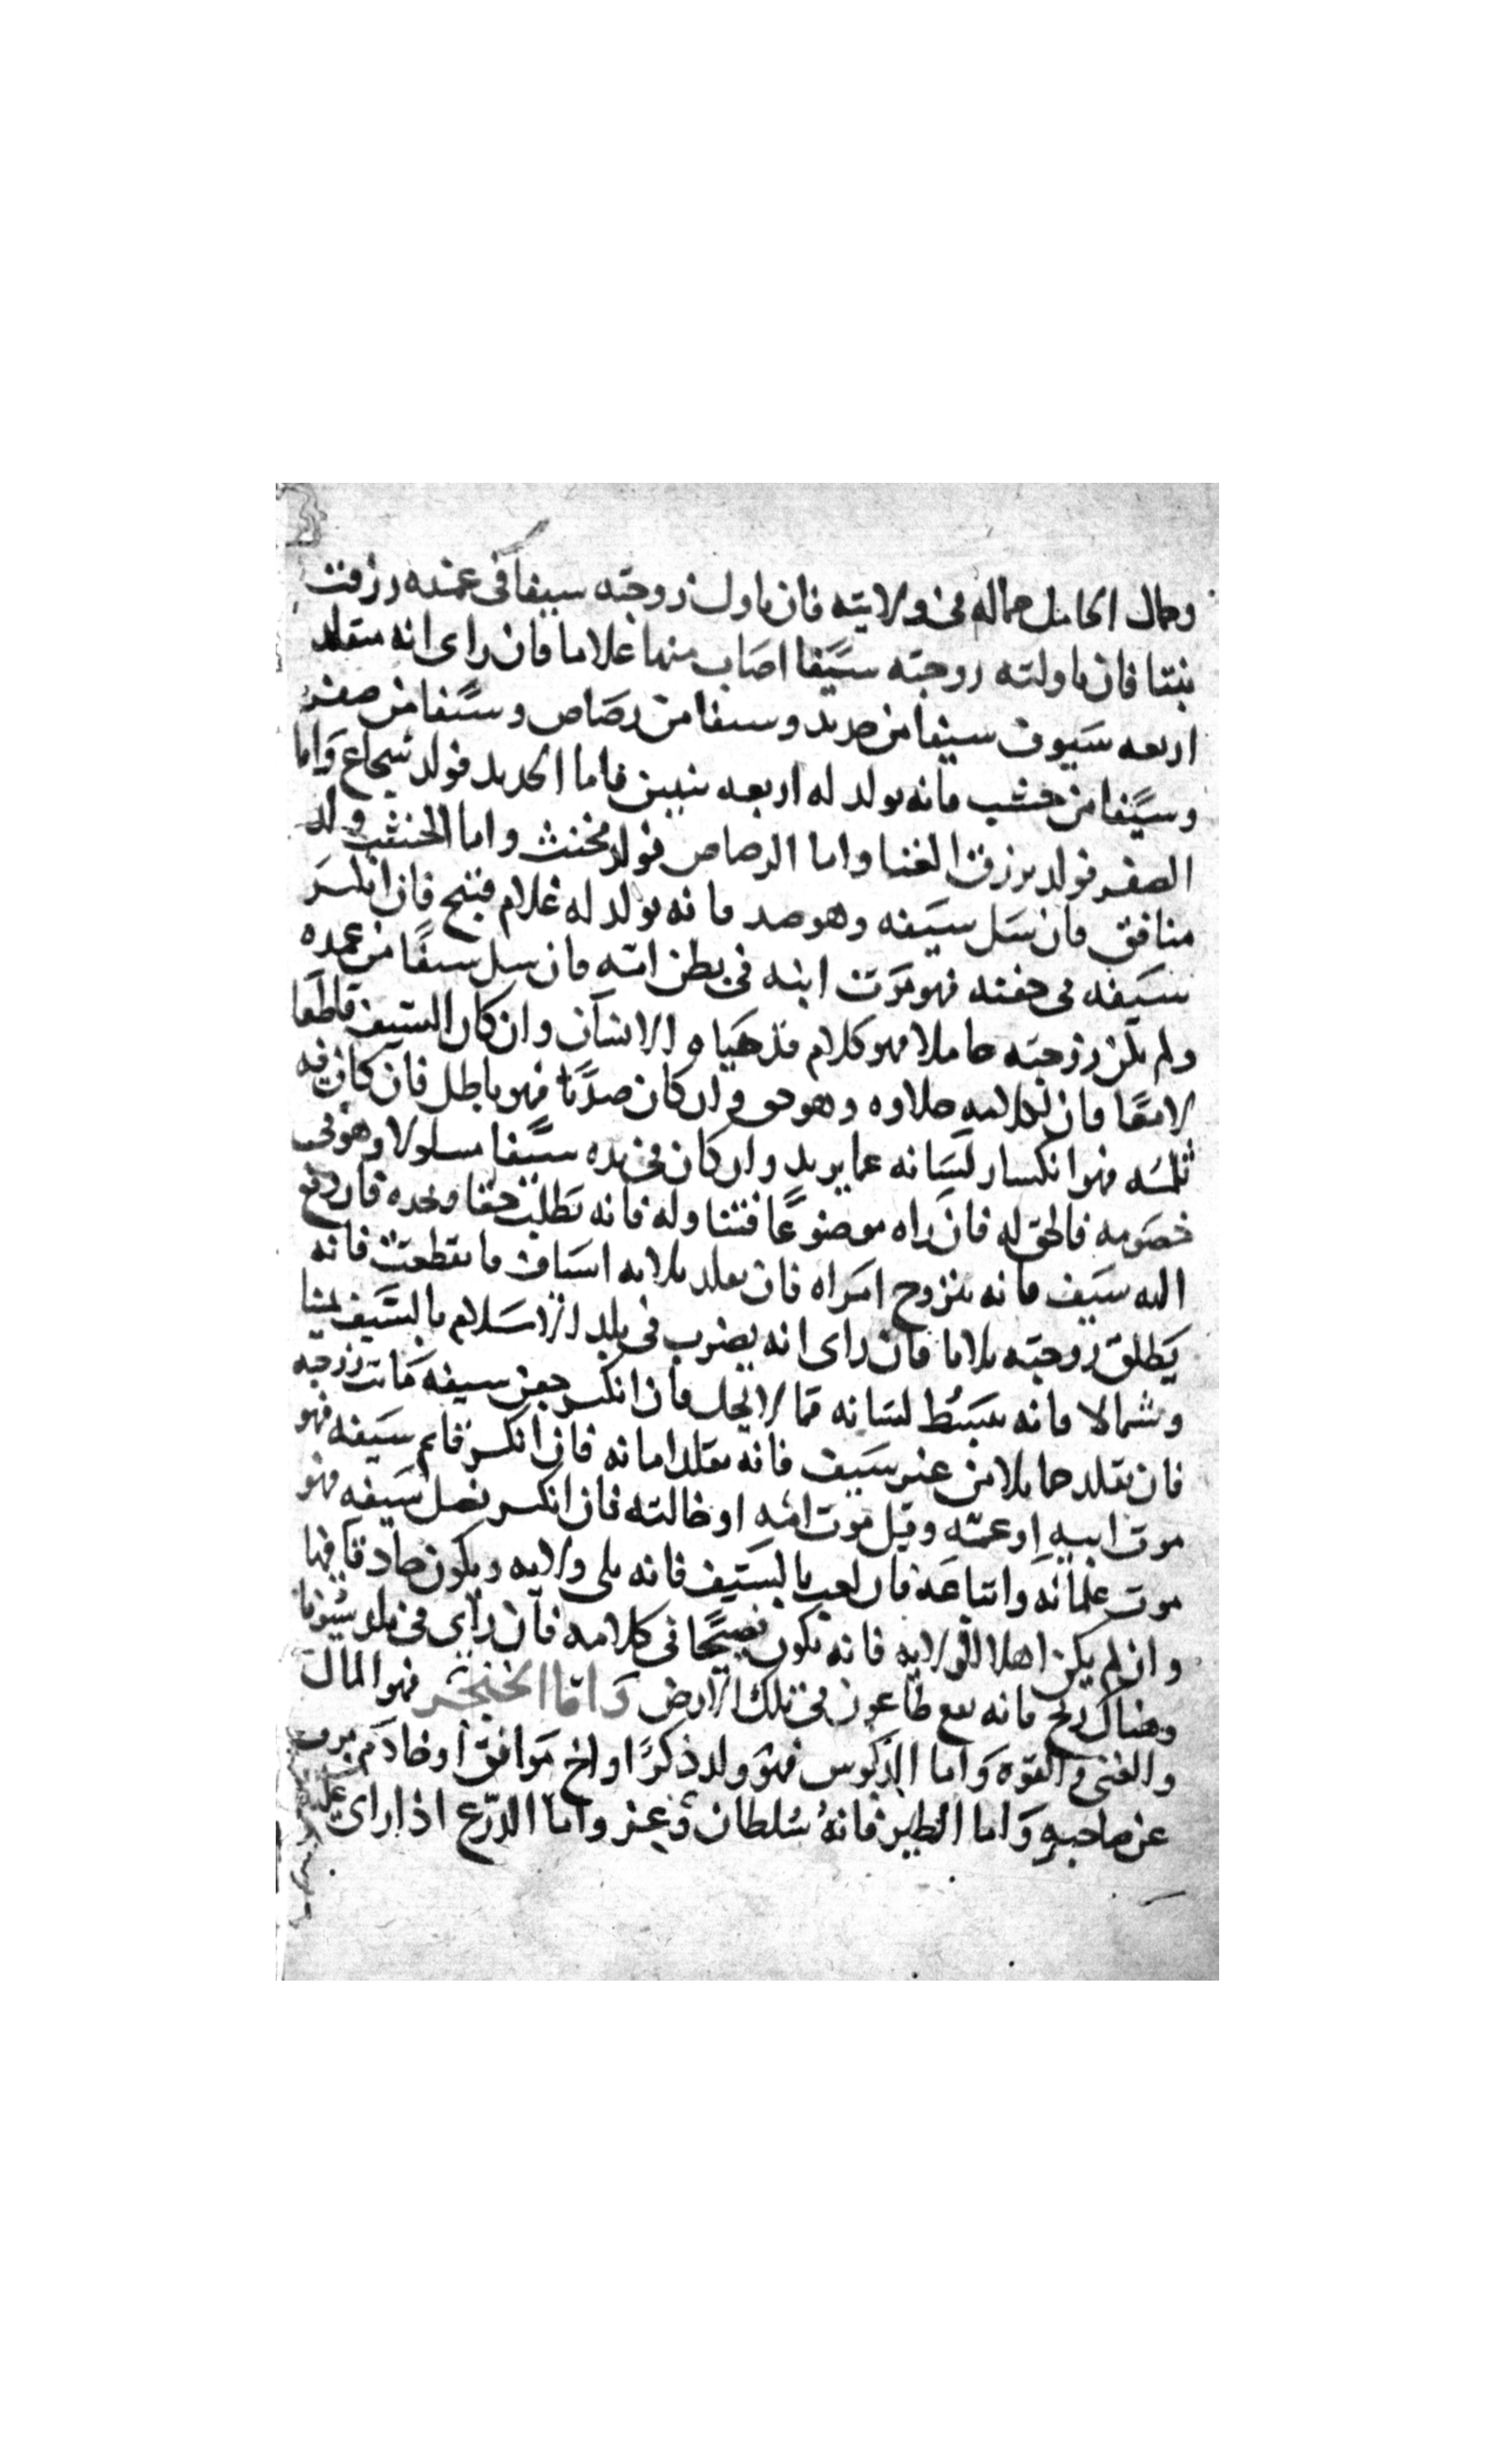 وجمال الحامل جماله في ولايته فان ناول زوجته سيفا في غمده رزقت
بنتا فان ناولته زوجته سيفا اصاب منها غلاما فان راى انه متقلد
اربعه سيوف سيفا من حديد وسيفا من رصاص وسيفا من صفر
وسيفا من خشب فانه يولد له اربعه بنين فاما الحديد فولد شجاع واما
الصفر فولد يرزق الغنا واما الرصاص فولد مخنث واما الخشب ولد
منافق فان سل سيفه وهو صد فانه يولد له غلام قبيح فان انكسر
سيفه في جفنه فهو موت ابنه في بطن امه فان سل سيفا من غمده
ولم يكن زوجته حاملا فهو كلام قد هياه الانسان وان كان السيف قاطعا
لامعا فان لكلامه حلاوه وهو حق وان كان صديا فهو باطل فان كان فيه
ثلمه فهو انكسار لسانه عما يريد وان كان في يده سيفا مسلولا وهو في
خصومه فالحق له فان راه موضوعا فتناوله فانه يطلب حقا ويجده فان دفع
اليه سيف فانه يتزوج امراه فان تقلد ثلاثه اسياف فانقطعت فانه
يطلق زوجته ثلاثا فان راى انه يضرب في بلد الاسلام بالسيف يمينا
وشمالا فانه يبسط لسانه فما لا يحل فان انكسر جفن سيفه ماتت زوجته
فان تقلد حمايلا من غير سيف فانه يقلد امانه فان انكسر قايم سيفه فهو
موت ابيه او عمه وقيل موت امه او خالته فان انكسر نصل سيفه فهو
موت غلمانه واتباعه فان لعب بالسيف فانه يلي ولايه ويكون حاذقا فيها
وان لم يكن اهلا للولايه فانه يكون فصيحا في كلامه فان راى في بلد سيوفا
وهناك ريح فانه يقع طاعون في تلك الارض واما الخنجر فهو المال
والغنى والقوه واما الدبوس فهو ولد ذكرا او اخ موافق او خادم
عن صاحبه واما الطير فانه سلطان وعز واما الدرع اذا راى عليه